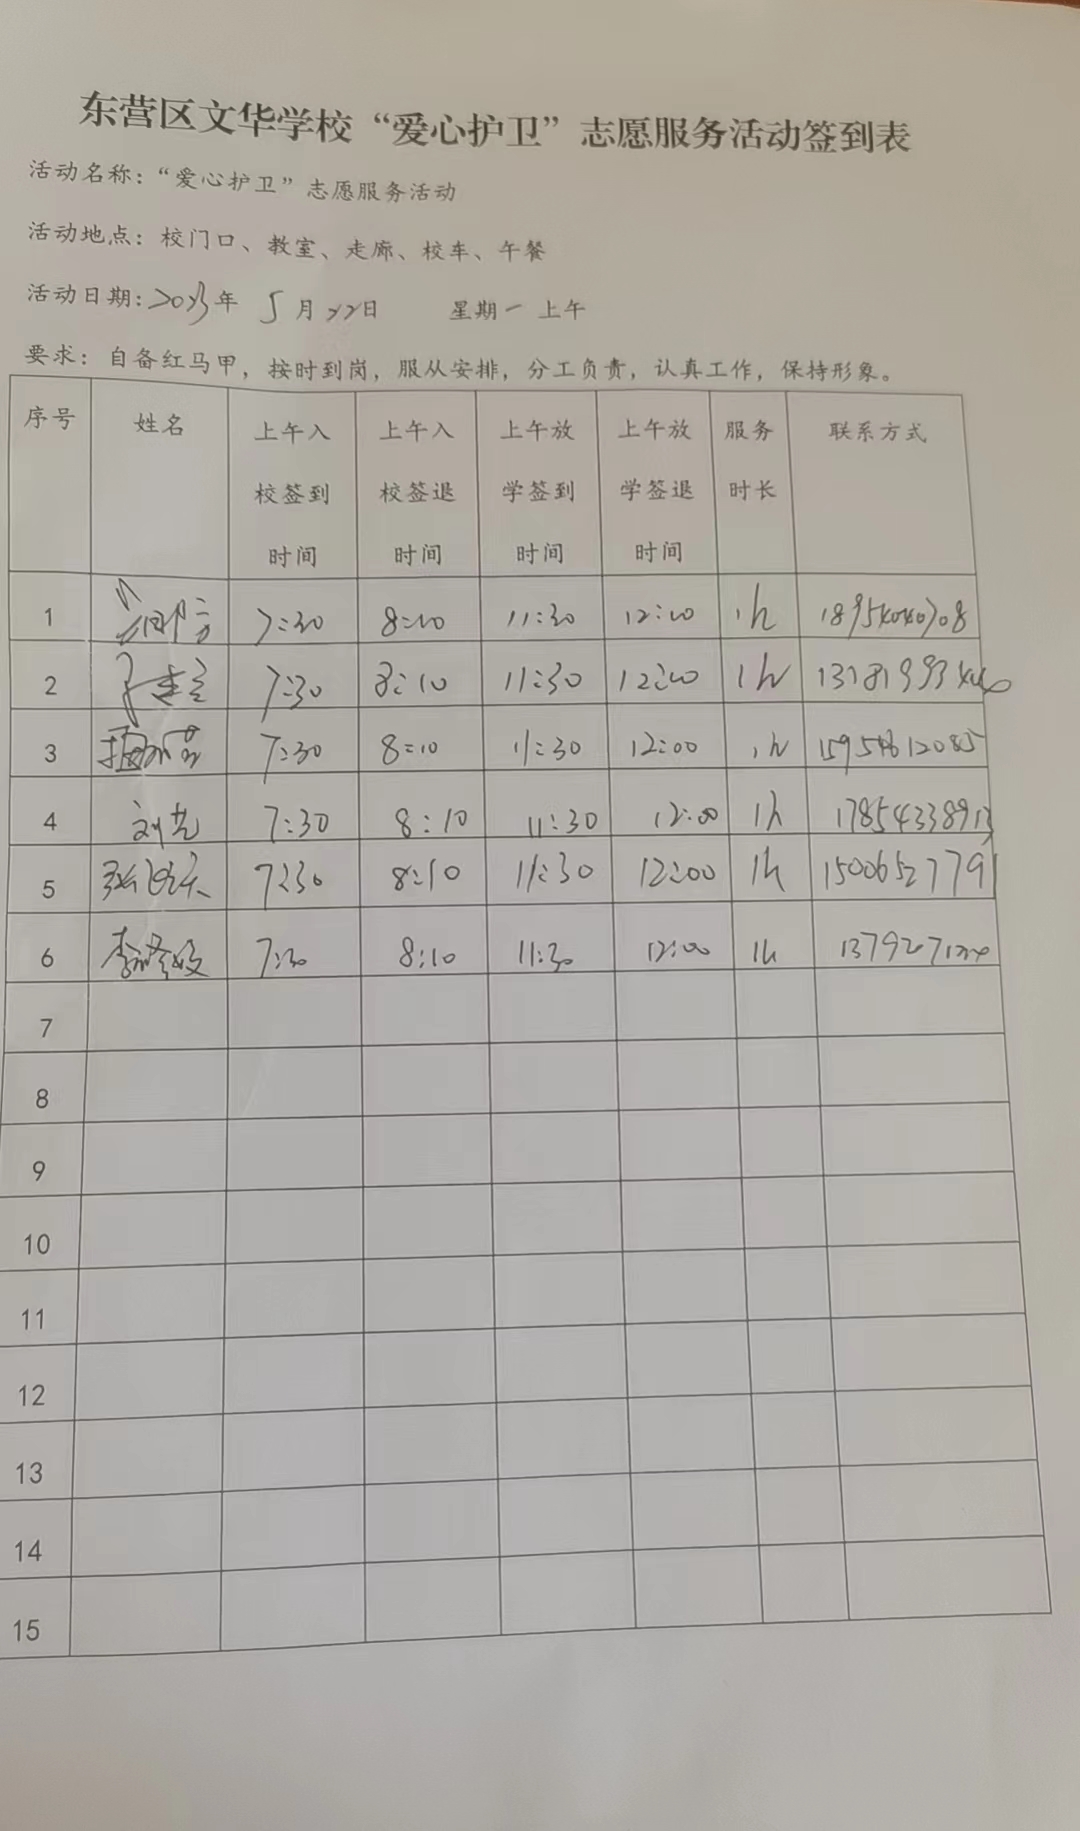 东营区文华学校“爱心护卫”志愿服务活动签到表
活动名称：“爱心护卫”志愿服务活动
活动地点：校门口、教室、走廊、校车、午餐
活动日期：2023年 5月22日 星期一 上午
要求：自备红马甲，按时到岗，服从安排，分工负责，认真工作，保持形象。
序号 姓名 上午入校签到时间 上午入校签退时间 上午放学签到时间 上午放学签退时间 服务时长 联系方式
1 7:30 8:10 11:30 12:00 1h 18954040708
2 7:30 8:10 11:30 12:00 1h
3 7:30 8:10 11:30 12:00 1h 15954612085
4 刘芳 7:30 8:10 11:30 12:00 1h 17854338913
5 7:30 8:10 11:30 12:00 1h 15006527791
6 7:30 8:10 11:30 12:00 1h
7
8
9
10
11
12
13
14
15